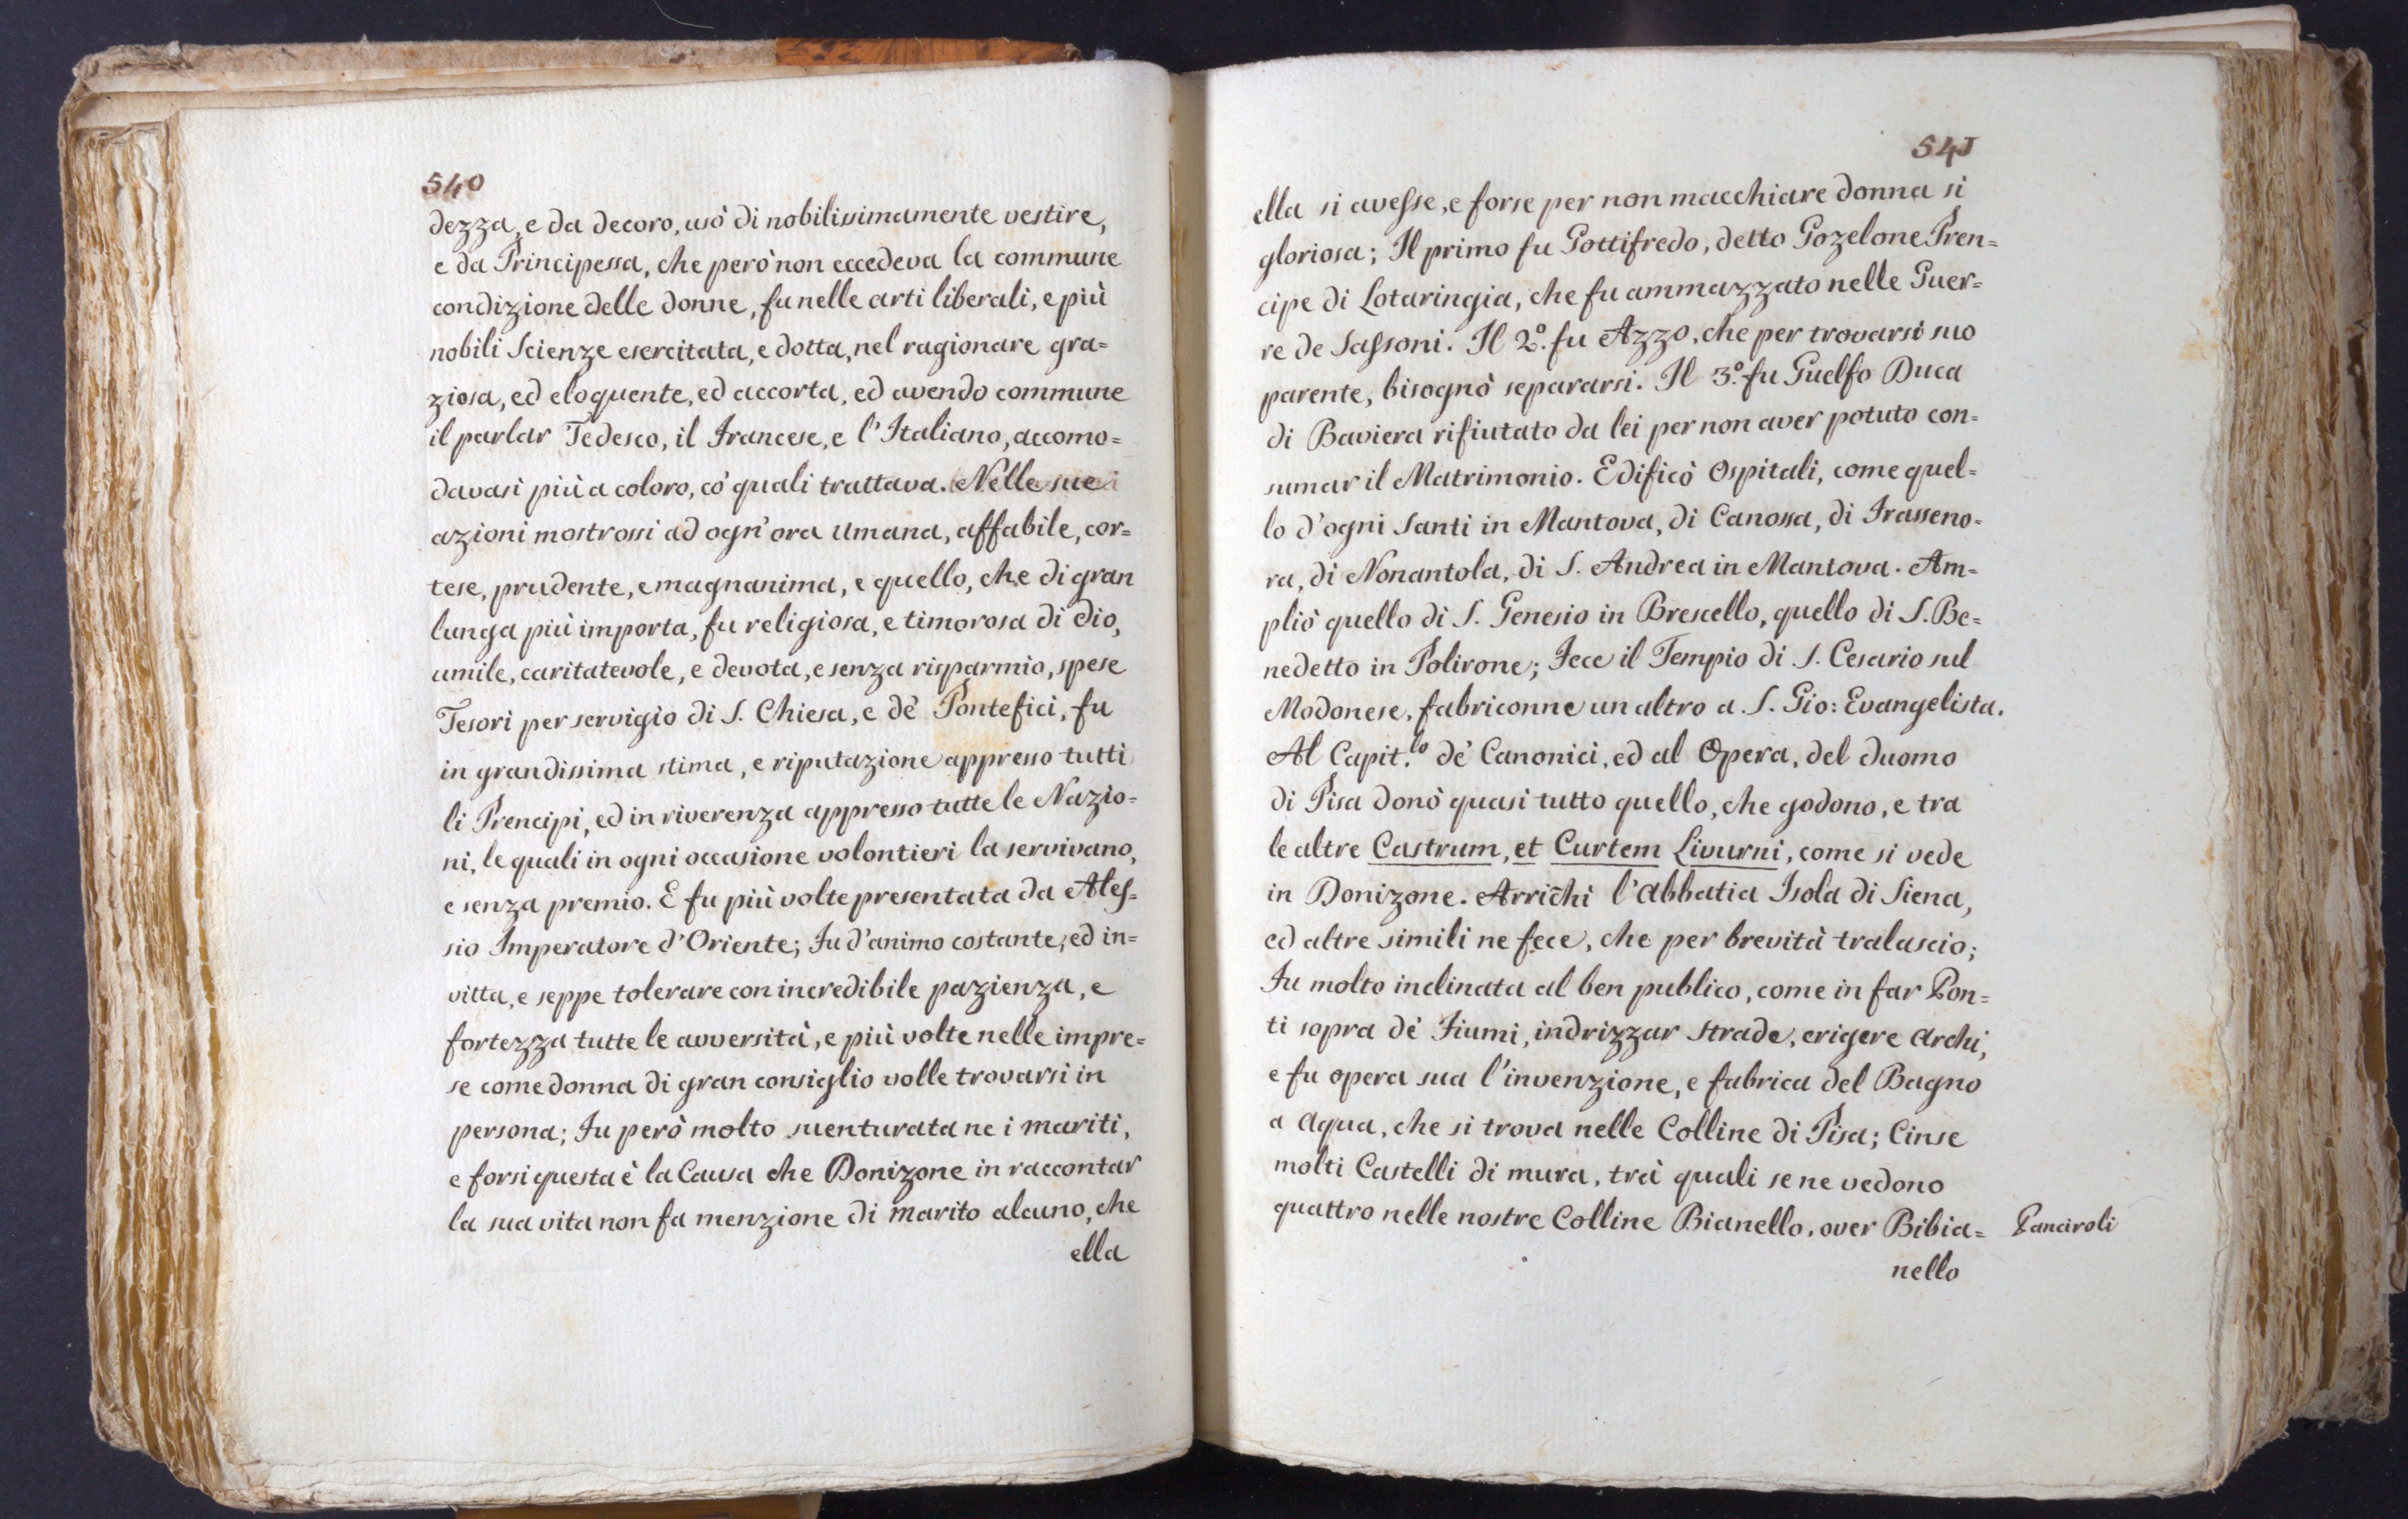 540
dezza, e da decoro, usò di nobilissimamente vestire,
e da Principessa, che però non eccedeva la commune
condizione delle donne, fu nelle arti liberali, e più
nobili Scienze esercitata, e dotta, nel ragionare gra=
ziosa, ed eloquente, ed accorta, ed avendo commune
il parlar Tedesco, il Francese, e l'Italiano, accomo=
davasi più a coloro, co' quali trattava. Nelle sue
azioni mostrossi ad ogn'ora umana, affabile, cor=
tese, prudente, e magnanima, e quello, che di gran
lunga più importa, fu religiosa, e timorosa di dio,
umile, caritatevole, e devota, e senza risparmio, spese
Tesori per servigio di S. Chiesa, e de' Pontefici, fu
in grandissima stima, e riputazione appresso tutti
li Prencipi, ed in riverenza appresso tutte le Nazio=
ni, le quali in ogni occasione volontieri la servivano,
e senza premio. E fu più volte presentata da Ales=
sio Imperatore d'Oriente; Fu d'animo costante, ed in=
vitta, e seppe tolerare con incredibile pazienza, e
fortezza tutte le avversità, e più volte nelle impre=
se come donna di gran consiglio volle trovarsi in
persona; Fu però molto suenturata ne i mariti,
e forsi questa è la Causa che Donizone in raccontar
la sua vita non fa menzione di marito alcuno, che
ella
541
ella si avesse, e forse per non macchiare donna sì
gloriosa; Il primo fu Gottifredo, detto Gozelone Pren=
cipe di Lotaringia, che fu ammazzato nelle Guer=
re de Sassoni. Il 2.º fu Azzo, che per trovarsi suo
parente, bisognò separarsi. Il 3.º fu Guelfo Duca
di Baviera rifiutato da lei per non aver potuto con=
sumar il Matrimonio. Edificò Ospitali, come quel=
lo d'ogni Santi in Mantova, di Canossa, di Frasseno=
ra, di Nonantola, di S. Andrea in Mantova. Am=
pliò quello di S. Genesio in Brescello, quello di S. Be=
nedetto in Polirone; Fece il Tempio di S. Cesario sul
Modonese, fabriconne un altro a S. Gio: Evangelista.
Al Capit.lo de' Canonici, ed al Opera, del duomo
di Pisa donò quasi tutto quello, che godono, e tra
le altre Castrum, et Curtem Livurni, come si vede
in Donizone. Arrichì l'Abbatia Isola di Siena,
ed altre simili ne fece, che per brevità tralascio;
Fu molto inclinata al ben publico, come in far Pon=
ti sopra de' Fiumi, indrizzar strade, erigere Archi,
e fu opera sua l'invenzione, e fabrica del Bagno
a Aqua, che si trova nelle Colline di Pisa; Cinse
molti Castelli di mura, trà quali se ne vedono
quattro nelle nostre Colline Bianello, over Bibia= Panciroli
nello